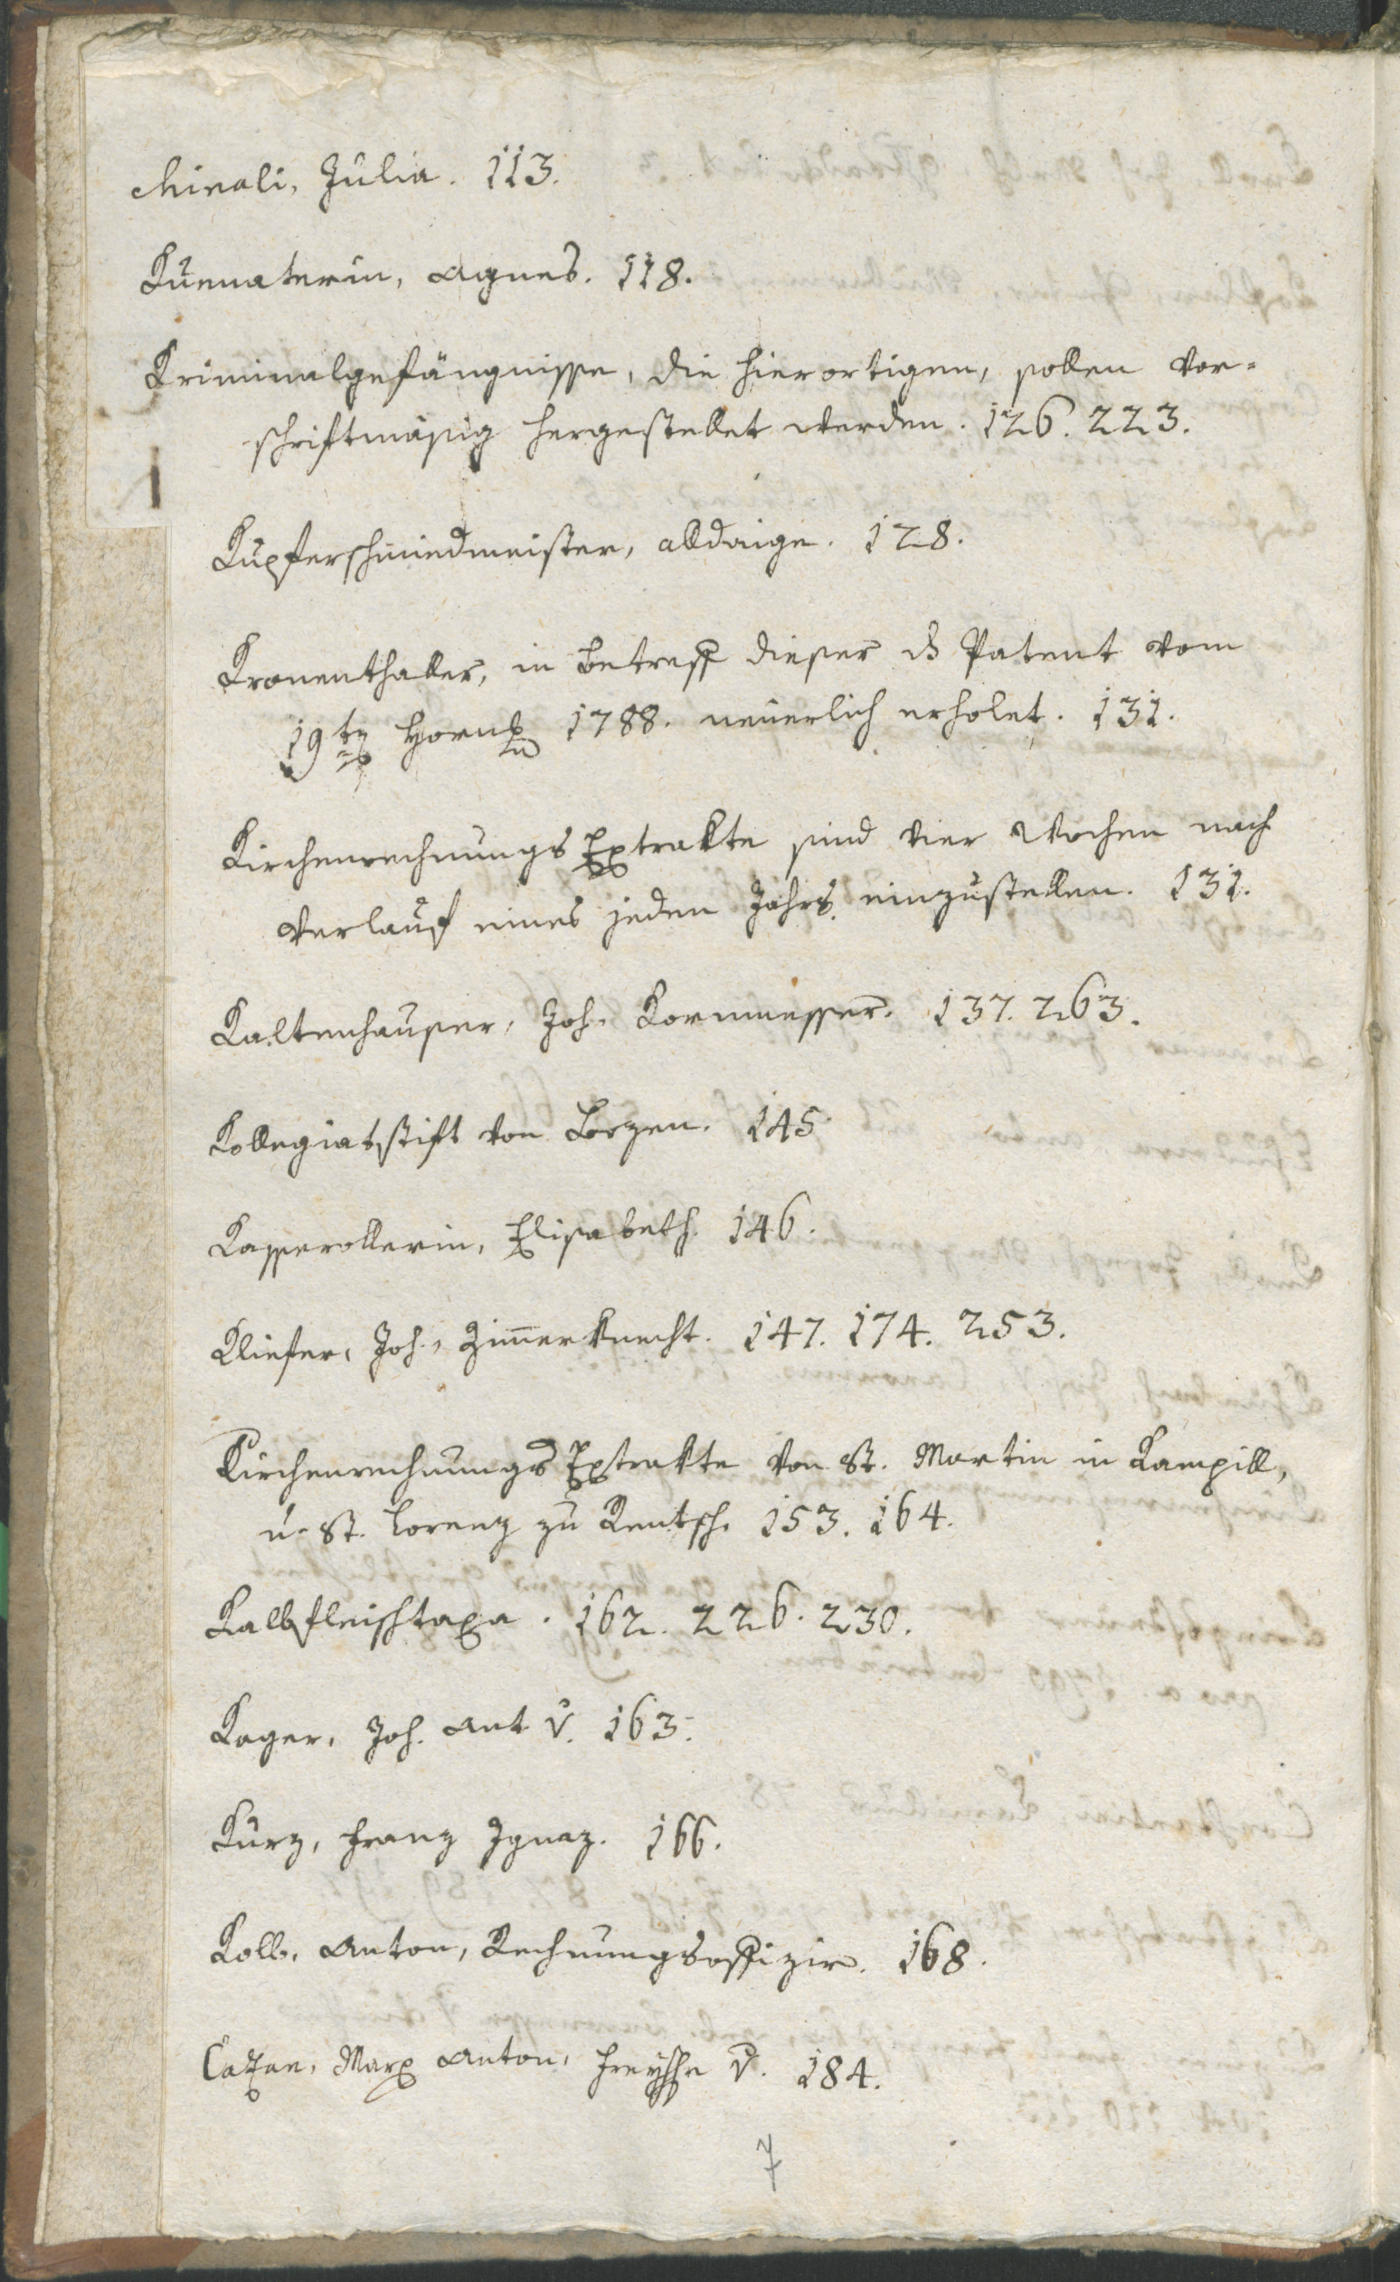 Chinali, Julia. 113.
Kuenaterin, Agnes. 118.
Kriminalgefängnisse, die hierortigen, sollen vor-
schriftmäsig hergestellet werden. 126. 223.
Kupferschmiedmeister, alldaige. 128.
Kronenthaller, in Betreff dieser ds Patent vom
19ten Hornung 1788. neuerlich erholet. 131.
Kirchenrechnungs Extrakte sind vier Wochen nach
Verlauf eines jeden Jahrs einzustellen. 131.
Kaltenhauser, Joh. Kornmesser. 137. 263.
Kollegiatstift von Bozen. 145
Kasserollerin, Elisabeth. 146.
Kliefer, Joh., Zimmerknecht. 147. 174. 253.
Kirchenrechnungs Extrakte von St. Martin in Kampill,
u. St. Lorenz zu Rentsch. 153. 164.
Kalbfleischtaxa. 162. 226. 230.
Kager, Joh. Ant v. 163.
Kurz, Franz Ignaz. 166.
Kolb, Anton, Rechnungsoffizir. 168.
Cazan, Marx Anton, Freyhr v. 184.
7